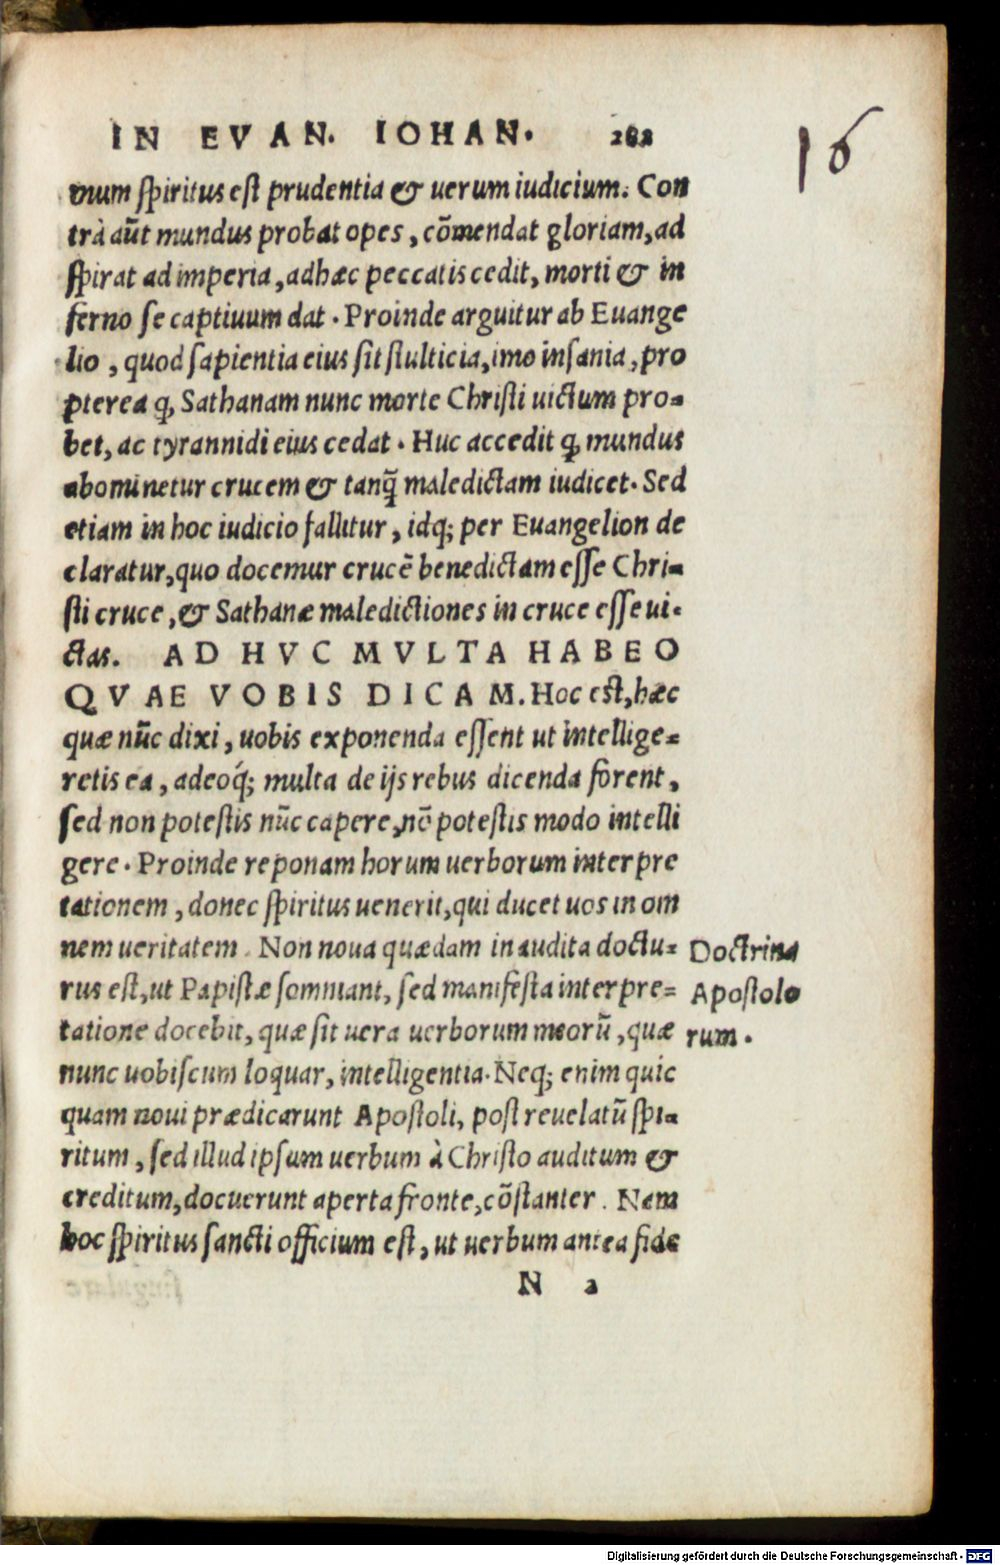 IN EVAN. IOHAN. 282
16
mum spiritus est prudentia & uerum iudicium. Con
trà aũt mundus probat opes, cõmendat gloriam, ad
spirat ad imperia, adhæc peccatis cedit, morti & in
ferno se captiuum dat. Proinde arguitur ab Euange
lio, quod sapientia eius sit stulticia, imo insania, pro
pterea ꝙ Sathanam nunc morte Christi uictum pro=
bet, ac tyrannidi eius cedat. Huc accedit ꝙ mundus
abominetur crucem & tanq̃ maledictam iudicet. Sed
etiam in hoc iudicio fallitur, idq; per Euangelion de
claratur, quo docemur crucẽ benedictam esse Chri=
sti cruce, & Sathanæ maledictiones in cruce esse ui=
ctas. AD HVC MVLTA HABEO
QVAE VOBIS DICAM. Hoc est, hæc
quæ nũc dixi, uobis exponenda essent ut intellige=
retis ea, adeoq́; multa de ijs rebus dicenda forent,
sed non potestis nũc capere, nõ potestis modo intelli
gere. Proinde reponam horum uerborum interpre
tationem, donec spiritus uenerit, qui ducet uos in om
nem ueritatem. Non noua quædam inaudita doctu=
rus est, ut Papistæ somniant, sed manifesta interpre=
tatione docebit, quæ sit uera uerborum meorũ, quæ
nunc uobiscum loquar, intelligentia. Neq; enim quic
quam noui prædicarunt Apostoli, post reuelatũ spi=
ritum, sed illud ipsum uerbum à Christo auditum &
creditum, docuerunt aperta fronte, cõstanter. Nam
hoc spiritus sancti officium est, ut uerbum antea fide
Doctrina
Apostolo
rum.
N 2
Digitalisierung gefördert durch die Deutsche Forschungsgemeinschaft - DFG